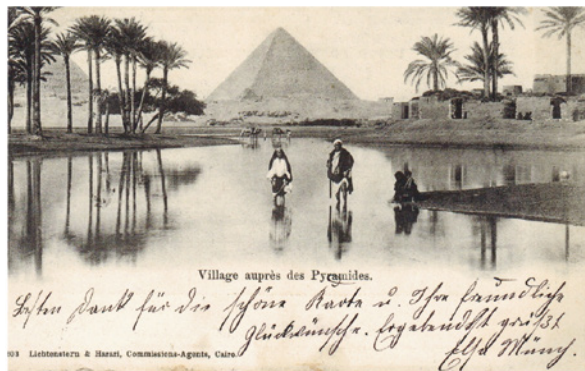 Village auprès des Pyramides.
Besten Dank für die schöne Karte u. Ihre freundliche
Glückwünsche. Ergebendst grüßt
Elsa Münch.
Lichtenstern & Harari, Commissions-Agents, Cairo.